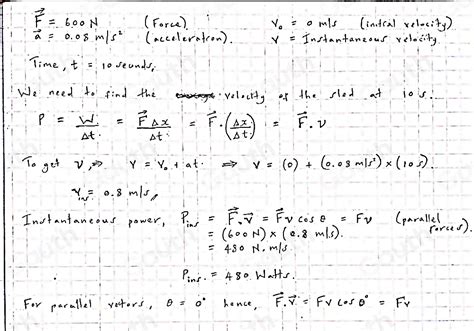 F⃗ = 600 N (Force) V₀ = 0 m/s (initial velocity)
a⃗ = 0.08 m/s² (acceleration). V = Instantaneous velocity
Time, t = 10 seconds,
We need to find the velocity of the sled at 10 s.
P = W/Δt = F⃗ Δx/Δt = F⃗ · (Δx⃗/Δt) = F⃗ . v
To get v, ⇒ V = V₀ + at ⇒ V = (0) + (0.08 m/s²) × (10 s).
V_ins = 0.8 m/s,
Instantaneous power, P_ins = F⃗ . v⃗ = Fv cos θ = Fv (parallel forces).
= (600 N) × (0.8 m/s).
= 480 N. m/s
P_ins. = 480 Watts.
For parallel vectors, θ = 0° hence, F⃗ . v⃗ = Fv cos 0° = Fv